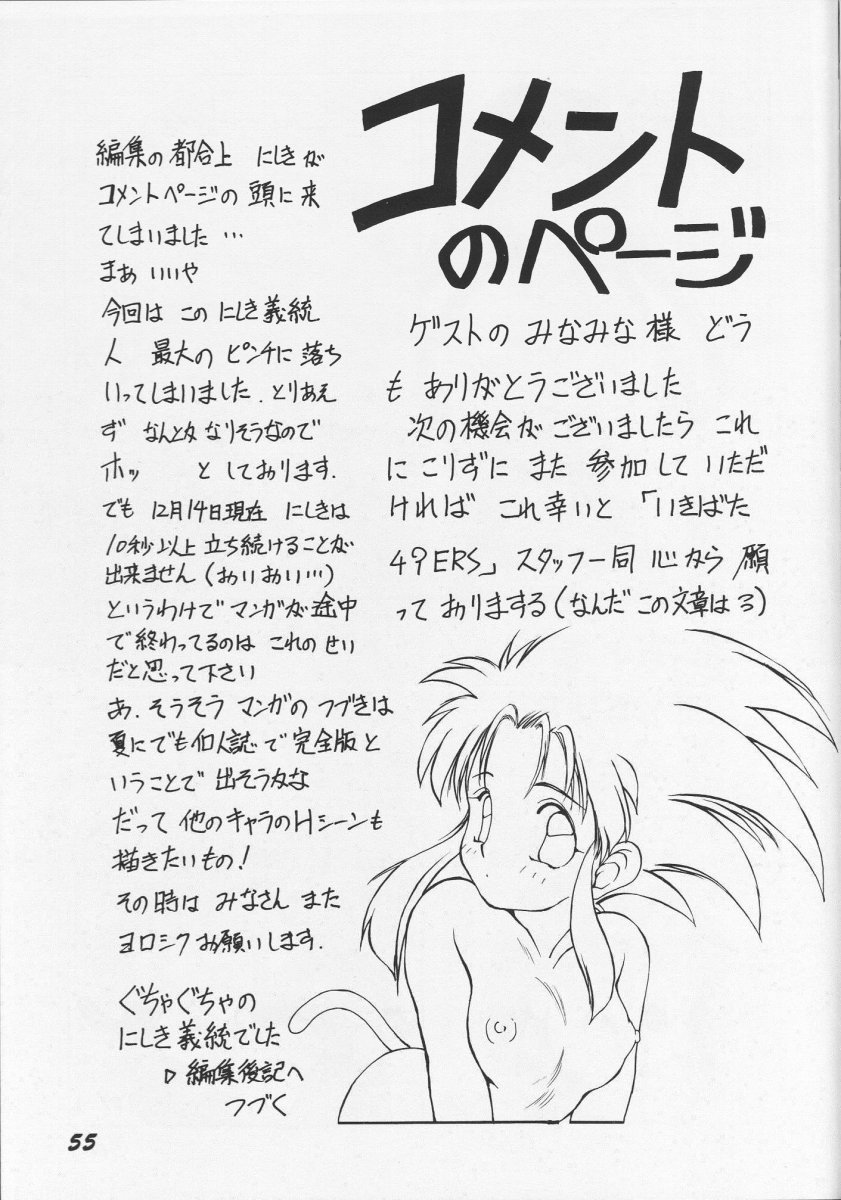 コメント
のページ
編集の都合上 にしきが
コメントページの頭に来
てしまいました…
まぁいいや
今回は この にしき義統
人 最大の ピンチに落ち
いってしまいました. とりあえ
ず なんとか なりそうなので
ホッ と しております.
でも 12月14日現在 にしきは
10秒以上立ち続けることが
出来ません(おいおい…)
というわけで マンガが途中
で終わってるのは これの せい
だと思って下さい
あ. そうそう マンガの つづきは
夏にでも個人誌で完全版と
いうことで 出そうかな
だって 他のキャラのHシーンも
描きたいもの!
その時は みなさん また
ヨロシク お願いします.
ぐちゃぐちゃの
にしき義統でした
▷ 編集後記へ
つづく
ゲストの みなみな様 どう
も ありがとうございました
次の機会がございましたら これ
に こりずに また 参加して いただ
ければ これ幸いと 「いきばた
49ERS」スタッフ一同 心から 願
って おりまする(なんだ この文章は3)
55